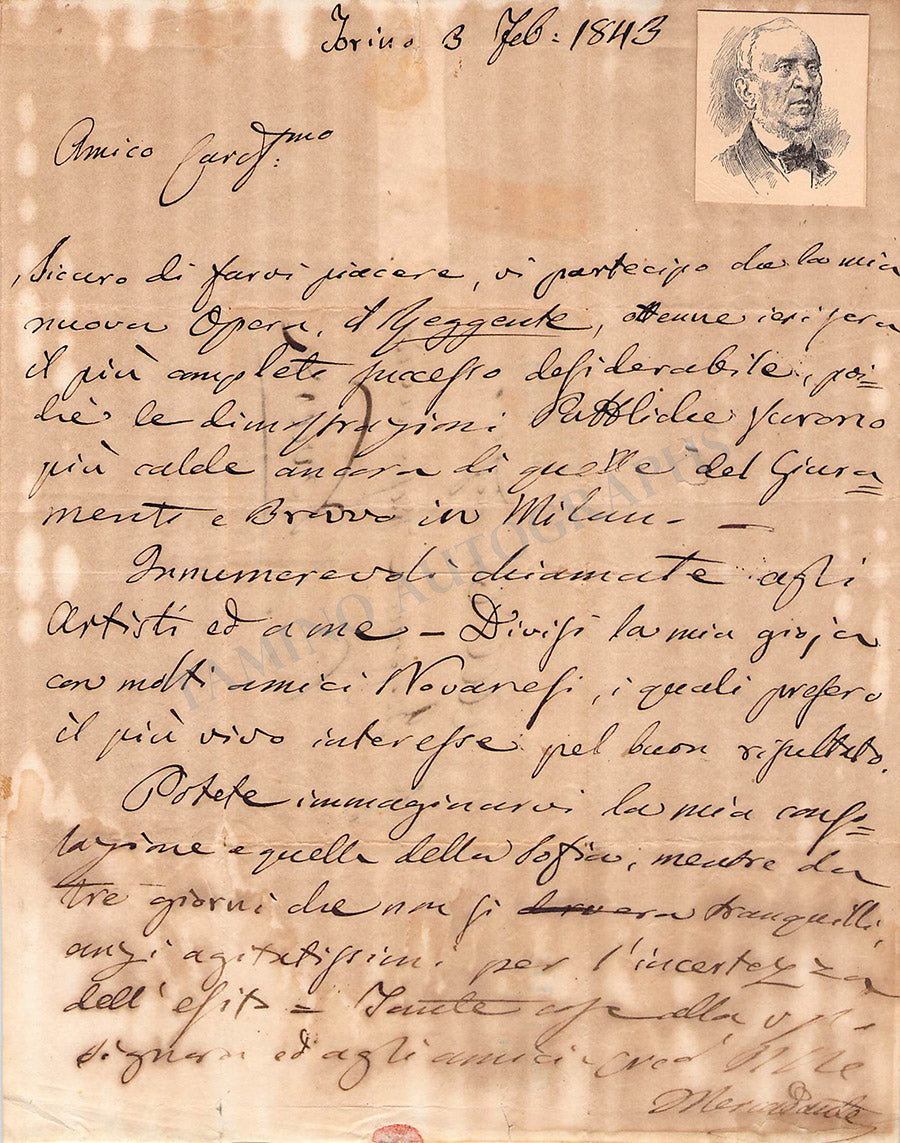 Torino 3 Feb: 1843
Amico Cariss:mo
Sicuro di farvi piacere, vi partecipo che la mia
nuova Opera, il Reggente, ottenne ieri sera
il più completo successo desiderabile, poi=
chè le dimostrazioni Pubbliche furono
più calde ancora di quelle del Giura=
mento e Bravo in Milan. —
Innumerevoli chiamate agli
Artisti ed a me — Divisi la mia gioja
con molti amici Novaresi, i quali presero
il più vivo interesse pel buon risultato.
Potete immaginarvi la mia conso=
lazione e quella della Sofia, mentre da
tre giorni che non si era tranquilli,
anzi agitatissimi per l'incertezza
dell'esito = Tante cose alla
signora ed agli amici
Mercadante
TAMINO AUTOGRAPHS